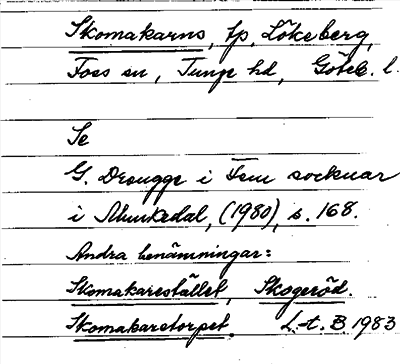 Skomakarns, tp, Lökeberg,
Foss sn, Tunge hd, Göteb. l.
Se
G. Drougge i Fem socknar
i Munkedal, (1980), s. 168.
Andra benämningar:
Skomakarestället, Skogeröd.
Skomakaretorpet. L-t. B. 1983